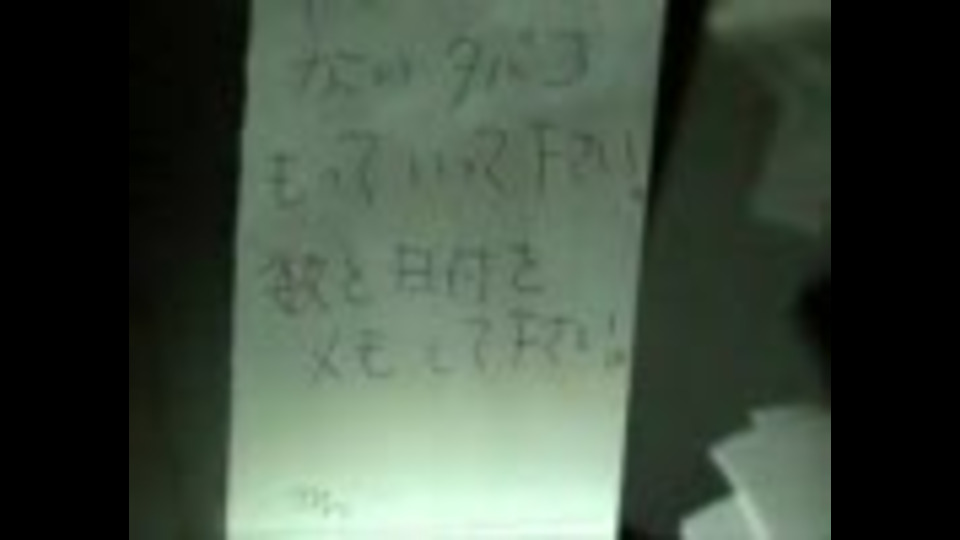 タバコ
もっていって下さい!
数と日付を
メモして下さい!